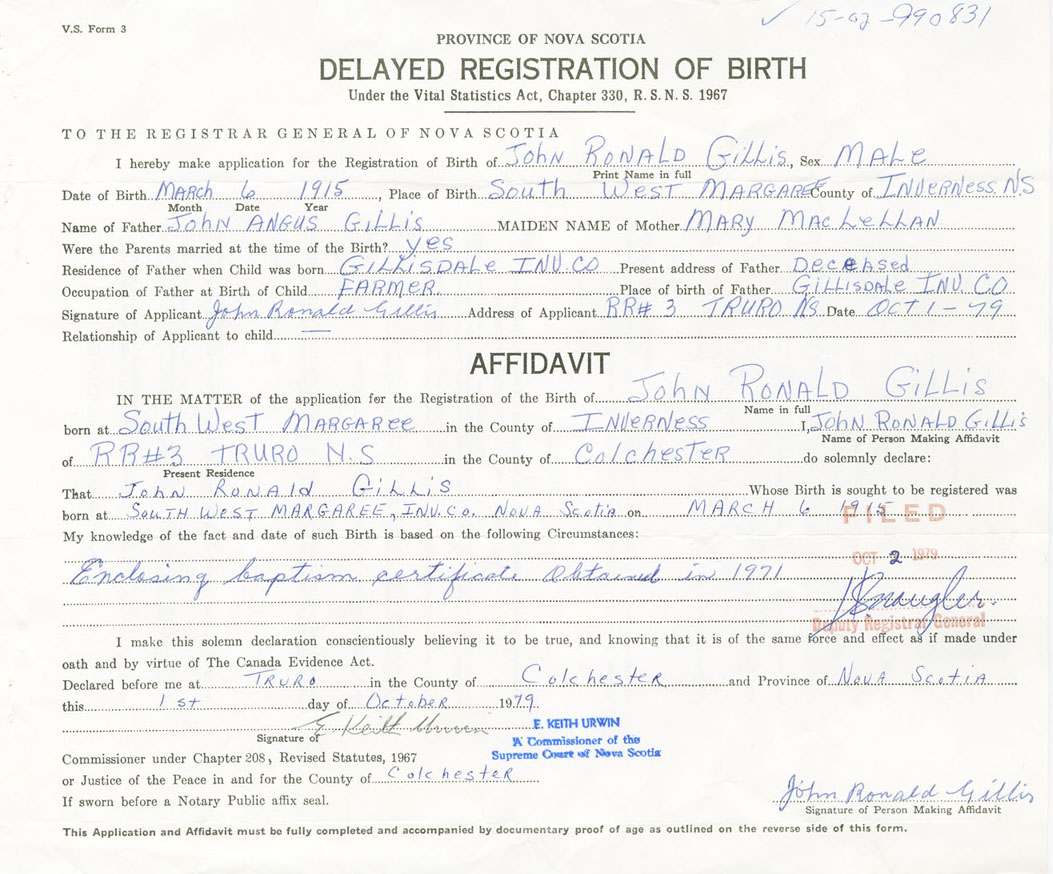 V.S. Form 3
✓ 15-02-990831
PROVINCE OF NOVA SCOTIA
DELAYED REGISTRATION OF BIRTH
Under the Vital Statistics Act, Chapter 330, R. S. N. S. 1967
TO THE REGISTRAR GENERAL OF NOVA SCOTIA
I hereby make application for the Registration of Birth of John RONALD Gillis, Sex MALE
Print Name in full
Date of Birth MARCH 6 1915, Place of Birth South West MARGAREE County of INVERNESS NS
Month Date Year
Name of Father John ANGUS Gillis MAIDEN NAME of Mother MARY MACLELLAN
Were the Parents married at the time of the Birth? yes
Residence of Father when Child was born GILLISDALE INV.CO Present address of Father Deceased
Occupation of Father at Birth of Child FARMER Place of birth of Father GILLISDALE INV. CO
Signature of Applicant John Ronald Gillis Address of Applicant RR# 3 TRURO NS Date OCT 1-79
Relationship of Applicant to child —
AFFIDAVIT
IN THE MATTER of the application for the Registration of the Birth of John RONALD GILLIS
Name in full
born at South West MARGAREE in the County of INVERNESS I, John RONALD Gillis
Name of Person Making Affidavit
of RR#3 TRURO N.S in the County of Colchester do solemnly declare:
Present Residence
That John Ronald Gillis Whose Birth is sought to be registered was
born at South West MARGAREE, INV.CO. Nova Scotia on MARCH 6 1915
FILED
My knowledge of the fact and date of such Birth is based on the following Circumstances:
OCT 2 1979
Enclosing baptism certificate Obtained in 1971
Deputy Registrar General
I make this solemn declaration conscientiously believing it to be true, and knowing that it is of the same force and effect as if made under
oath and by virtue of The Canada Evidence Act.
Declared before me at TRURO in the County of Colchester and Province of Nova Scotia
this 1st day of October 1979
E. Keith Urwin
E. KEITH URWIN
Signature of
A Commissioner of the
Supreme Court of Nova Scotia
Commissioner under Chapter 208, Revised Statutes, 1967
or Justice of the Peace in and for the County of Colchester
If sworn before a Notary Public affix seal.
John Ronald Gillis
Signature of Person Making Affidavit
This Application and Affidavit must be fully completed and accompanied by documentary proof of age as outlined on the reverse side of this form.